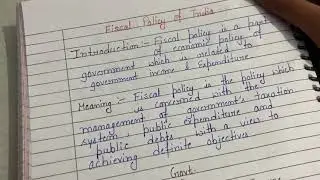 Fiscal Policy of India
Introduction:- Fiscal policy is a part
of economic policy of
government which is related to
government income & Expenditure
Meaning:- Fiscal policy is the policy which
is concerned with the
management of government's taxation
system, public expenditure and
public debts with a view to
achieving definite objectives.
Govt.